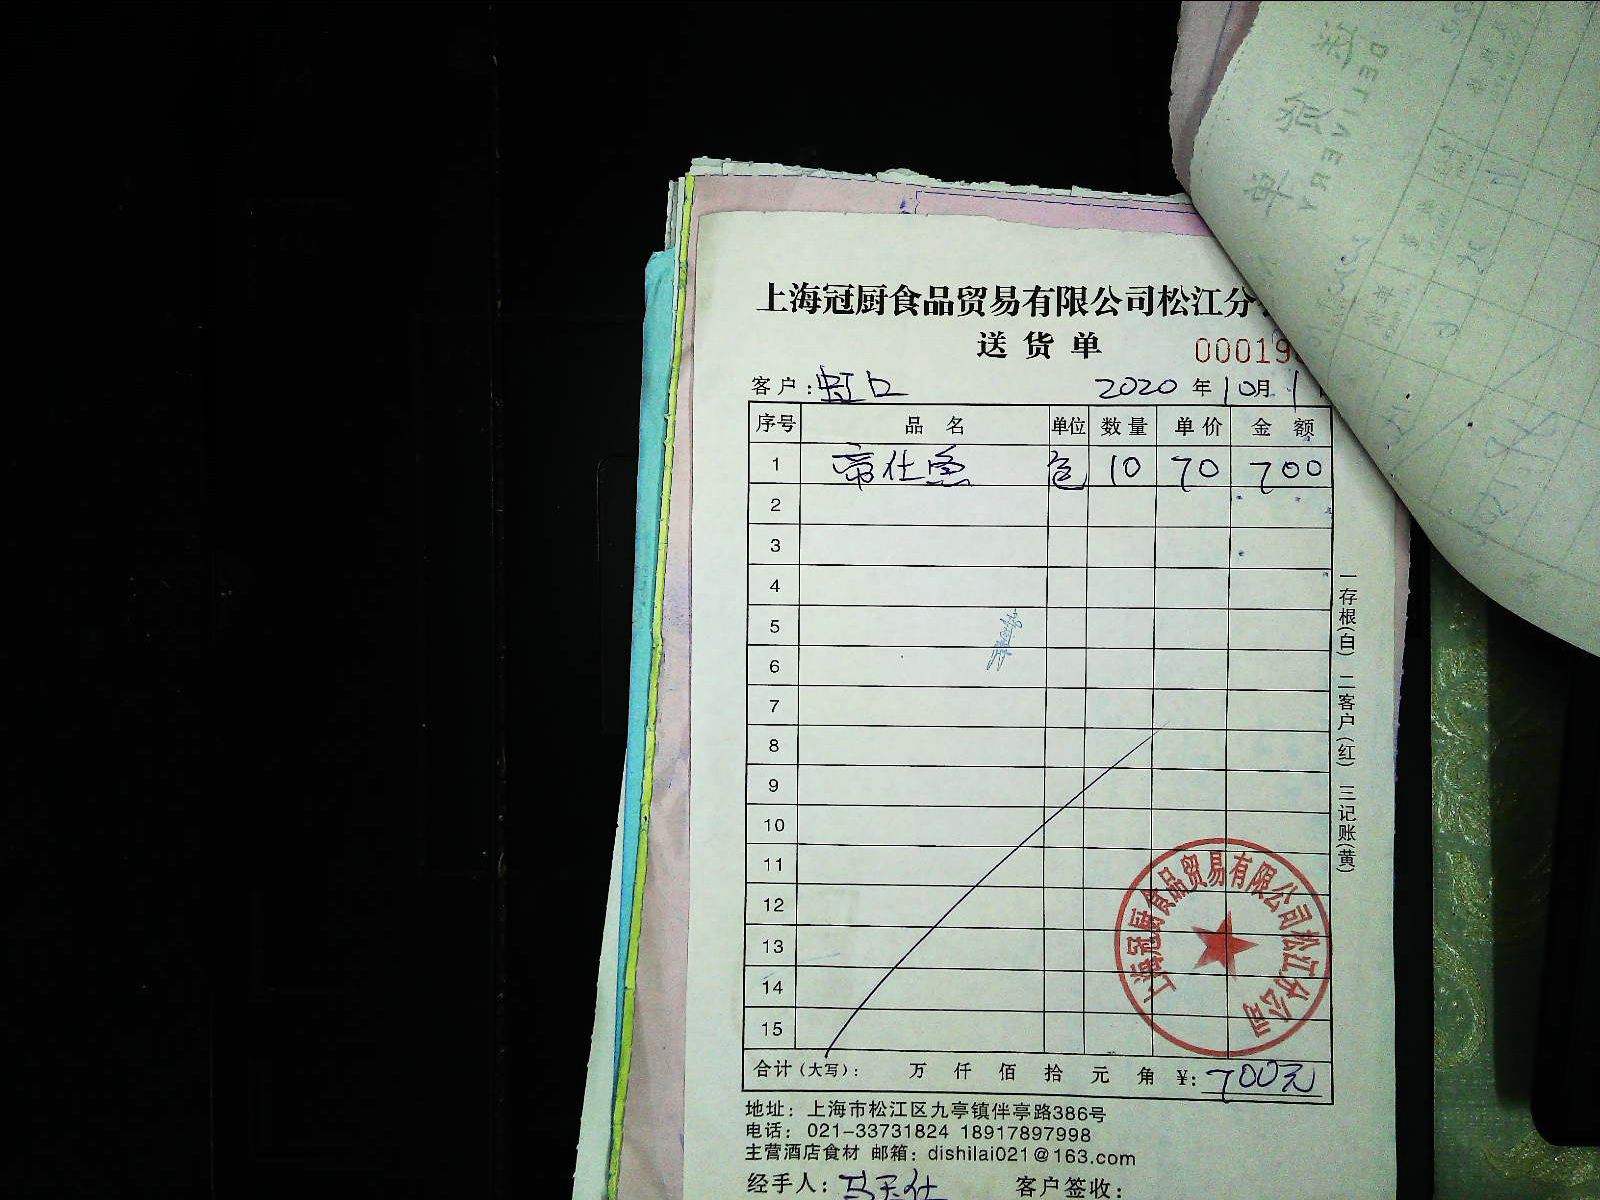 上海冠厨食品贸易有限公司松江分
送货单
00019
客户：虹口 2020年10月1
序号 品名 单位 数量 单价 金额
1 帝仕鱼 包 10 70 700
2
3
4
5
6
7
8
9
10
11
12
13
14
15
合计（大写）： 万 仟 佰 拾 元 角 ￥：700元
地址：上海市松江区九亭镇伴亭路386号
电话：021-33731824 18917897998
主营酒店食材 邮箱：dishilai021@163.com
经手人： 客户签收：
一存根（白） 二客户（红） 三记账（黄）
上海冠厨食品贸易有限公司松江分公司
DELIVERY